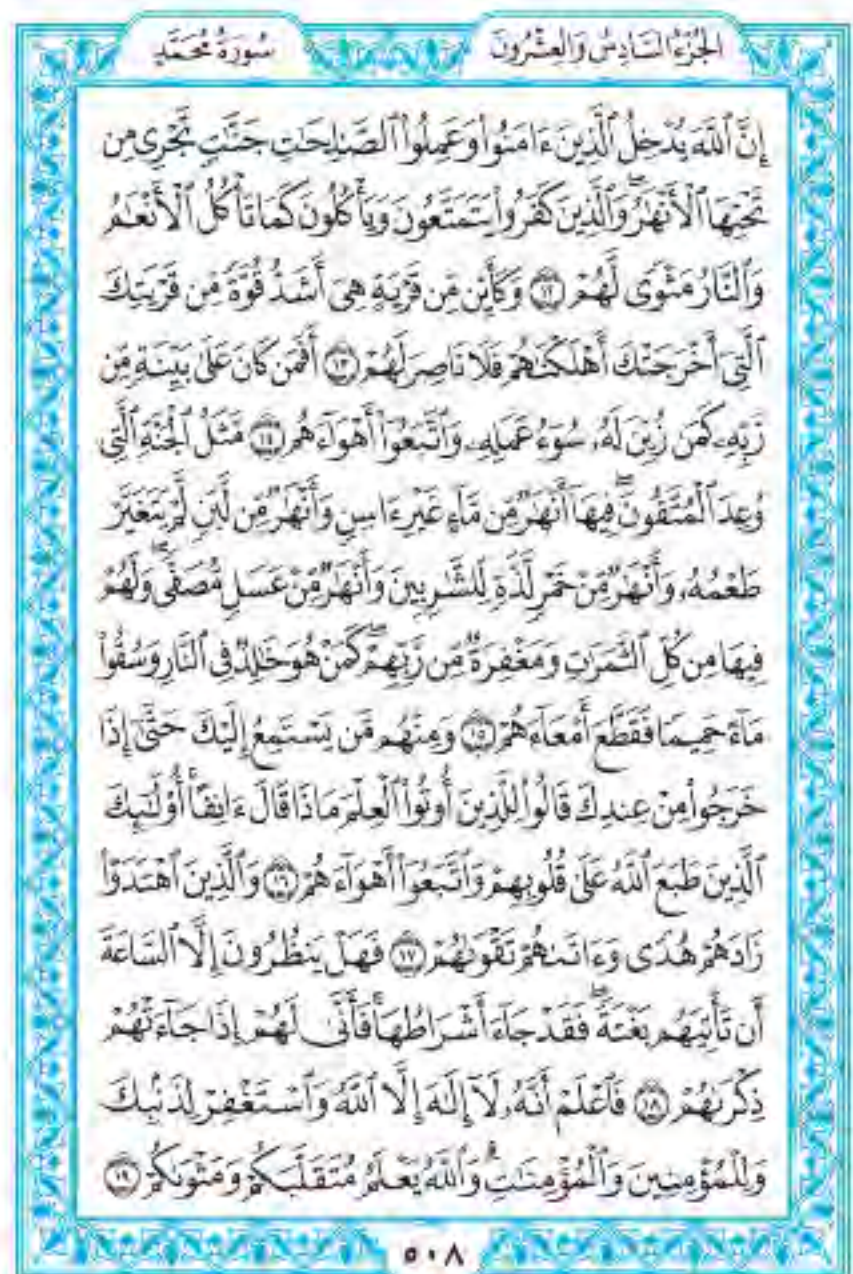 سُورَةُ مُحَمَّدٍ
الجُزْءُ السَّادِسُ وَالعِشْرُونَ
إِنَّ ٱللَّهَ يُدْخِلُ ٱلَّذِينَ ءَامَنُوا۟ وَعَمِلُوا۟ ٱلصَّٰلِحَٰتِ جَنَّٰتٍ تَجْرِى مِن
تَحْتِهَا ٱلْأَنْهَٰرُ ۖ وَٱلَّذِينَ كَفَرُوا۟ يَتَمَتَّعُونَ وَيَأْكُلُونَ كَمَا تَأْكُلُ ٱلْأَنْعَٰمُ
وَٱلنَّارُ مَثْوًى لَّهُمْ ١٢ وَكَأَيِّن مِّن قَرْيَةٍ هِىَ أَشَدُّ قُوَّةً مِّن قَرْيَتِكَ
ٱلَّتِىٓ أَخْرَجَتْكَ أَهْلَكْنَٰهُمْ فَلَا نَاصِرَ لَهُمْ ١٣ أَفَمَن كَانَ عَلَىٰ بَيِّنَةٍ مِّن
رَّبِّهِۦ كَمَن زُيِّنَ لَهُۥ سُوٓءُ عَمَلِهِۦ وَٱتَّبَعُوٓا۟ أَهْوَآءَهُم ١٤ مَّثَلُ ٱلْجَنَّةِ ٱلَّتِى
وُعِدَ ٱلْمُتَّقُونَ ۖ فِيهَآ أَنْهَٰرٌ مِّن مَّآءٍ غَيْرِ ءَاسِنٍ وَأَنْهَٰرٌ مِّن لَّبَنٍ لَّمْ يَتَغَيَّرْ
طَعْمُهُۥ وَأَنْهَٰرٌ مِّنْ خَمْرٍ لَّذَّةٍ لِّلشَّٰرِبِينَ وَأَنْهَٰرٌ مِّنْ عَسَلٍ مُّصَفًّى ۖ وَلَهُمْ
فِيهَا مِن كُلِّ ٱلثَّمَرَٰتِ وَمَغْفِرَةٌ مِّن رَّبِّهِمْ ۖ كَمَنْ هُوَ خَٰلِدٌ فِى ٱلنَّارِ وَسُقُوا۟
مَآءً حَمِيمًا فَقَطَّعَ أَمْعَآءَهُمْ ١٥ وَمِنْهُم مَّن يَسْتَمِعُ إِلَيْكَ حَتَّىٰٓ إِذَا
خَرَجُوا۟ مِنْ عِندِكَ قَالُوا۟ لِلَّذِينَ أُوتُوا۟ ٱلْعِلْمَ مَاذَا قَالَ ءَانِفًا ۚ أُو۟لَٰٓئِكَ
ٱلَّذِينَ طَبَعَ ٱللَّهُ عَلَىٰ قُلُوبِهِمْ وَٱتَّبَعُوٓا۟ أَهْوَآءَهُمْ ١٦ وَٱلَّذِينَ ٱهْتَدَوْا۟
زَادَهُمْ هُدًى وَءَاتَىٰهُمْ تَقْوَىٰهُمْ ١٧ فَهَلْ يَنظُرُونَ إِلَّا ٱلسَّاعَةَ
أَن تَأْتِيَهُم بَغْتَةً ۖ فَقَدْ جَآءَ أَشْرَاطُهَا ۚ فَأَنَّىٰ لَهُمْ إِذَا جَآءَتْهُمْ
ذِكْرَىٰهُمْ ١٨ فَٱعْلَمْ أَنَّهُۥ لَآ إِلَٰهَ إِلَّا ٱللَّهُ وَٱسْتَغْفِرْ لِذَنۢبِكَ
وَلِلْمُؤْمِنِينَ وَٱلْمُؤْمِنَٰتِ ۗ وَٱللَّهُ يَعْلَمُ مُتَقَلَّبَكُمْ وَمَثْوَىٰكُمْ ١٩
٥٠٨